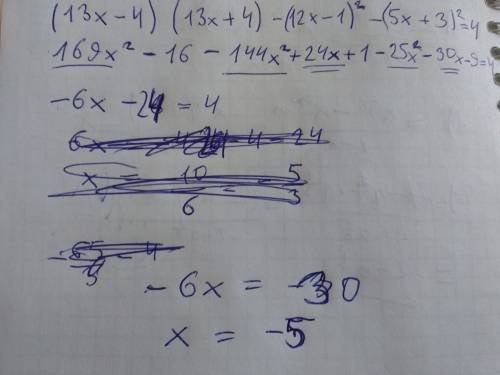 (13x-4) (13x+4) -(12x-1)² -(5x+3)²=4
169x² - 16 - 144x² + 24x + 1 - 25x² - 30x - 9 = 4
-6x - 24 = 4
-6x = -30
x = -5